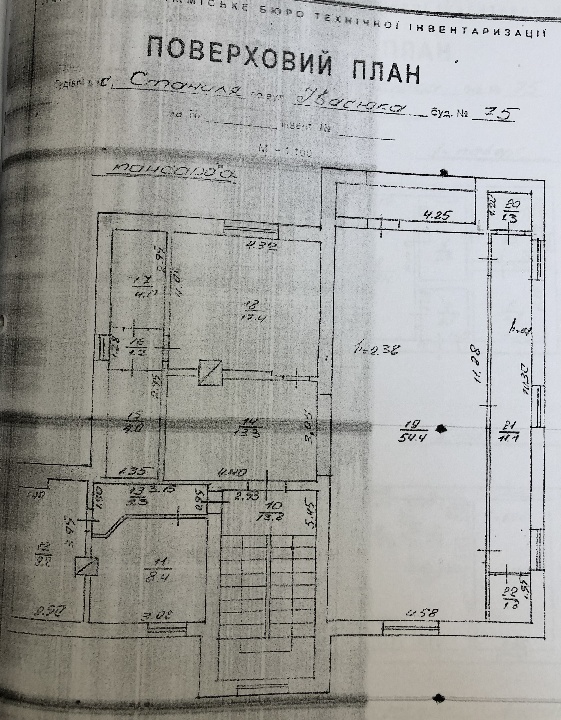 МІСЬКЕ БЮРО ТЕХНІЧНОЇ ІНВЕНТАРИЗАЦІЇ
ПОВЕРХОВИЙ ПЛАН
по вул. Івасюка буд. № 75
М - 1:100
мансарда
4.25
20
1.3
4.32
17
2.95
4.01
18
17.4
16
1.2
1.28
h=2.38
11.28
2.95
15
4.0
14
3.05
19
54.4
21
11.1
1.35
4.40
3.15
13
2.93
10
0.95
5.45
3.95
12
11
8.4
22
1.3
2.90
3.02
4.58